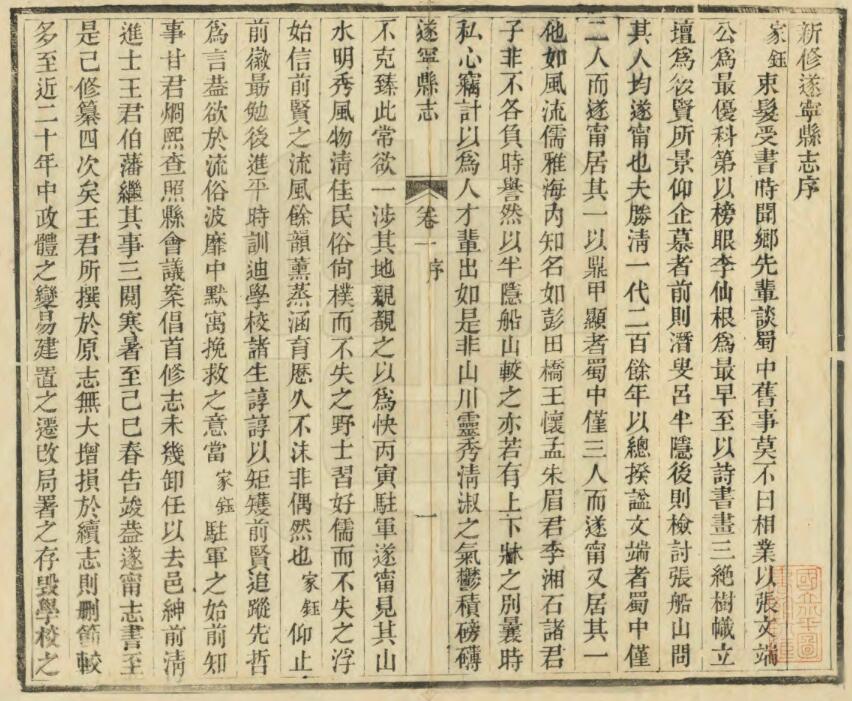 新修遂寧縣志序
家鈺束髮受書時聞鄉先輩談蜀中舊事莫不曰相業以張文端
公爲最優科第以榜眼李仙根爲最早至以詩書畫三絕樹幟立
壇爲後賢所景仰企慕者前則潛叟呂半隱後則檢討張船山問
其人均遂甯也夫勝淸一代二百餘年以總揆諡文端者蜀中僅
二人而遂甯居其一以鼎甲顯者蜀中僅三人而遂甯又居其一
他如風流儒雅海內知名如彭田橋王懷孟朱眉君李湘石諸君
子非不各負時譽然以半隱船山較之亦若有上下牀之別曩時
私心竊計以爲人才輩出如是非山川靈秀淸淑之氣鬱積磅礡
遂寧縣志 卷一 序 一
不克臻此常欲一涉其地親覩之以爲快丙寅駐軍遂甯見其山
水明秀風物淸佳民俗尙樸而不失之野士習好儒而不失之浮
始信前賢之流風餘韻薰蒸涵育歷久不沬非偶然也家鈺仰止
前徽最勉後進平時訓迪學校諸生諄諄以矩矱前賢追蹤先哲
爲言葢欲於流俗波靡中默寓挽救之意當家鈺駐軍之始前知
事甘君燜熙查照縣會議案倡首修志未幾卸任以去邑紳前淸
進士王君伯藩繼其事三閱寒暑至己巳春告竣葢遂甯志書至
是己修纂四次矣王君所撰於原志無大增損於續志則刪節較
多至近二十年中政體之變易建置之遷改局署之存毀學校之